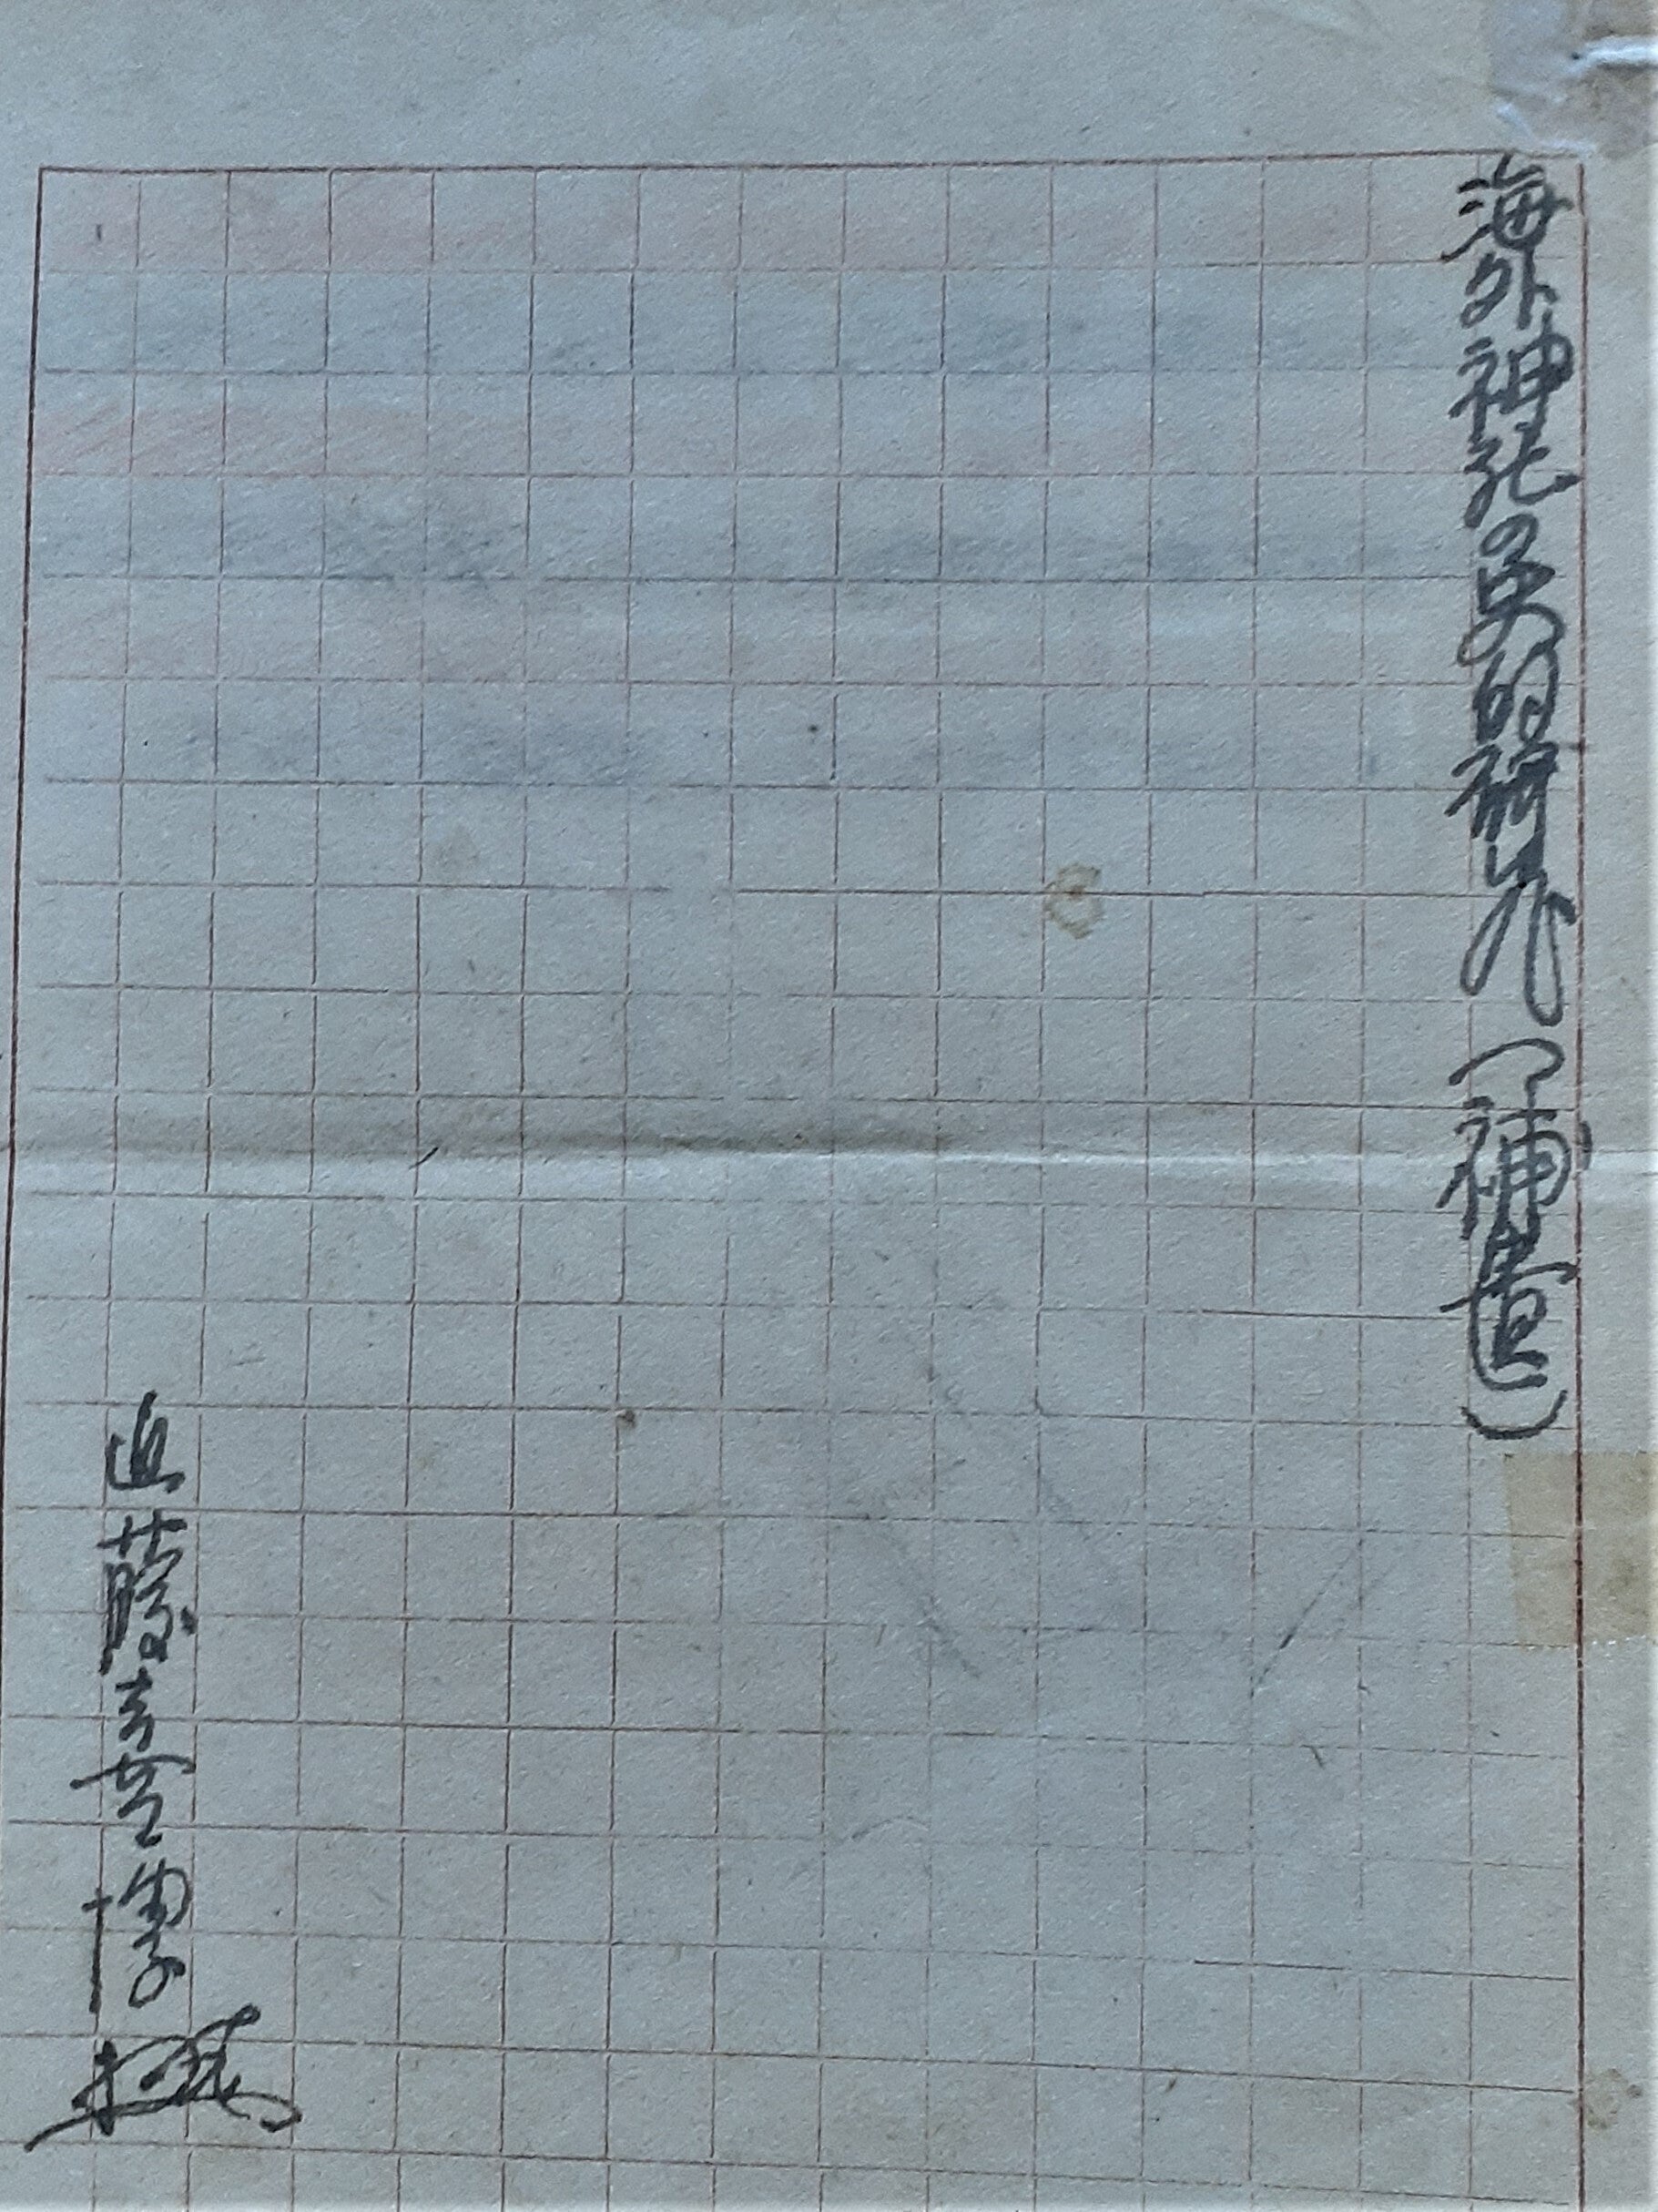 海外神社の史的研究(補遺)
近藤喜博